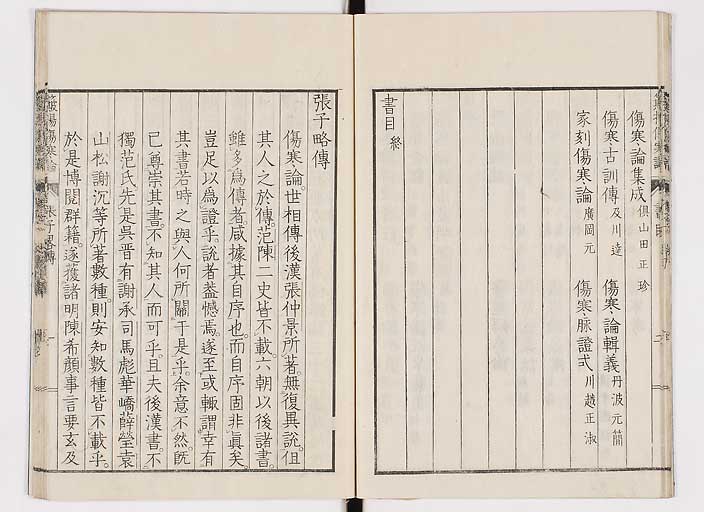 傷寒論集成 俱山田正珍
傷寒古訓傳 及川達 傷寒論輯義 丹波元簡
家刻傷寒論 廣岡元 傷寒脉證式 川越正淑
書目 終
張子略傳
傷寒論世相傳後漢張仲景所著無復異說但
其人之於傳范陳二史皆不載六朝以後諸書
雖多為傳者咸據其自序也而自序固非眞矣
豈足以為證乎說者益憾焉遂至或輙謂幸有
其書若時之與人何所關于是乎余意不然旣
已尊崇其書不知其人而可乎且夫後漢書不
獨范氏先是吳晋有謝承司馬彪華嶠薛瑩袁
山松謝沉等所著數種則安知數種皆不載乎
於是博閱群籍遂獲諸明陳希顏事言要玄及
張子畧傳